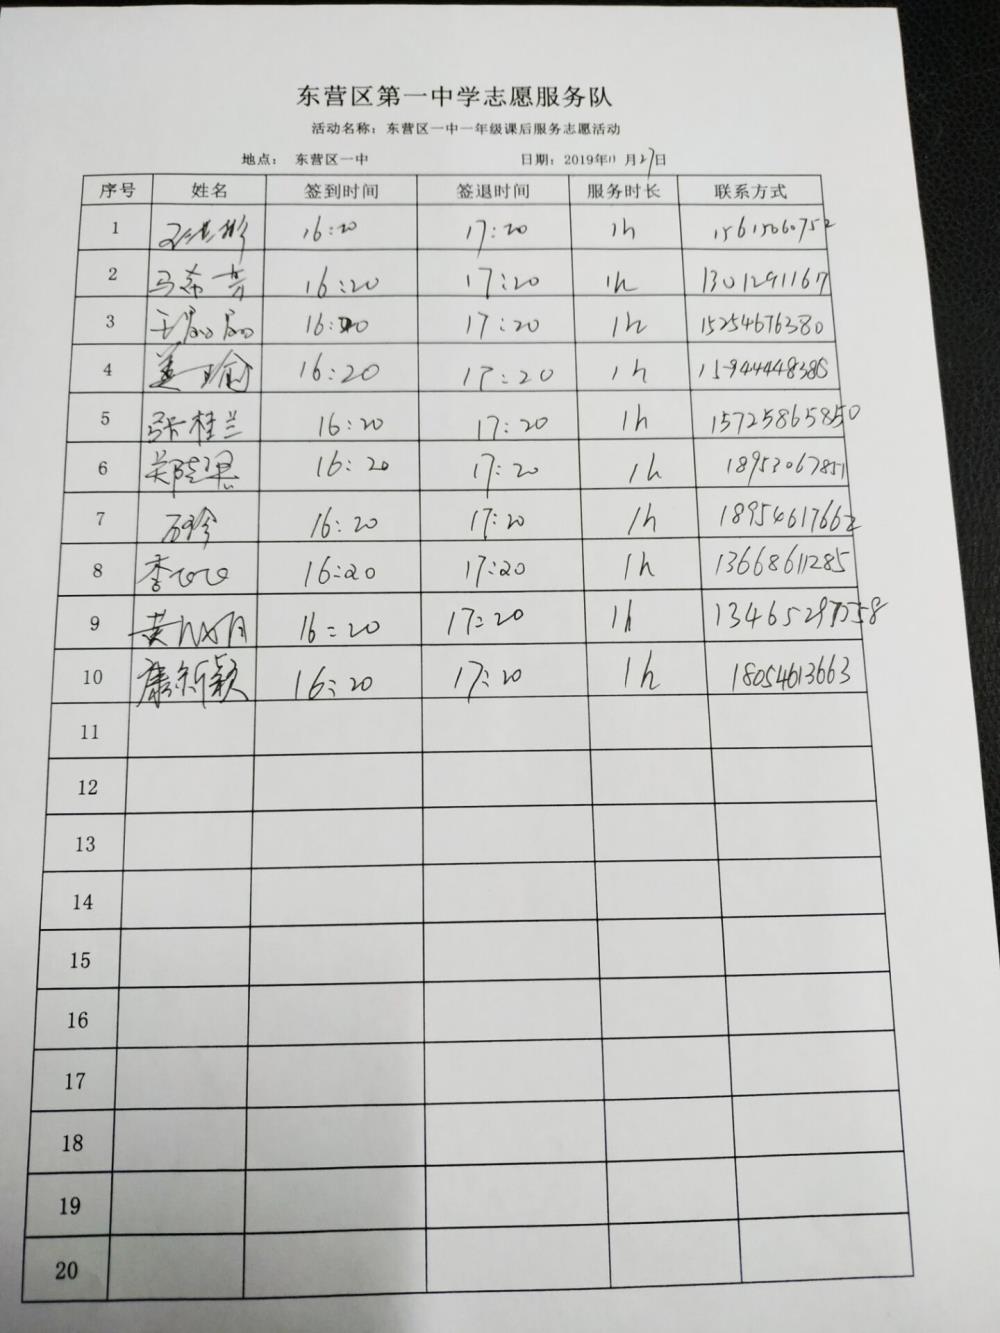 东营区第一中学志愿服务队
活动名称：东营区一中一年级课后服务志愿活动
地点： 东营区一中 日期：2019年11月27日
序号 姓名 签到时间 签退时间 服务时长 联系方式
1 16:20 17:20 1h 15615060752
2 马希芳 16:20 17:20 1h 1301291167
3 王晶晶 16:20 17:20 1h 15254676380
4 姜瑜 16:20 17:20 1h
5 张桂兰 16:20 17:20 1h 15725865850
6 16:20 17:20 1h 18953067851
7 石珍 16:20 17:20 1h 18954617662
8 李心心 16:20 17:20 1h 13668611285
9 黄 16:20 17:20 1h
10 康新颖 16:20 17:20 1h 18054613663
11
12
13
14
15
16
17
18
19
20